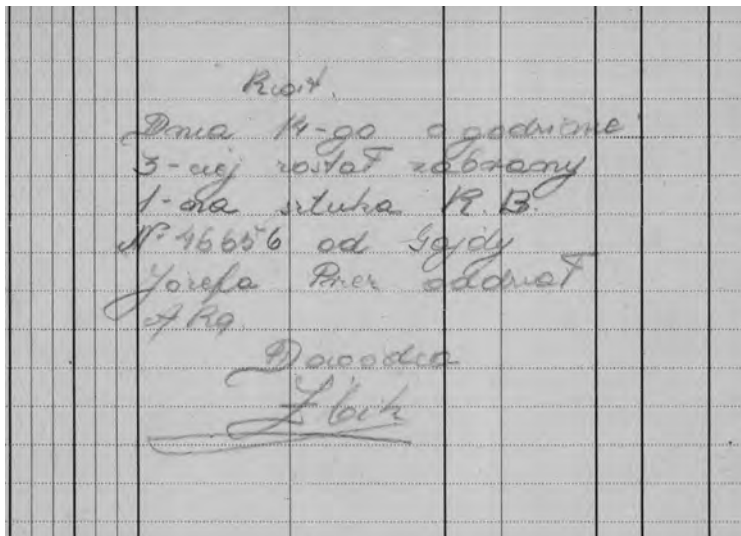 Kwit.
Dnia 14-go o godzinie
3-ciej został zabrany
1-na sztuka R.B.
Nº 46656 od Gajdy
Józefa Przez oddział
A Ka.
Dowodca
Zbik